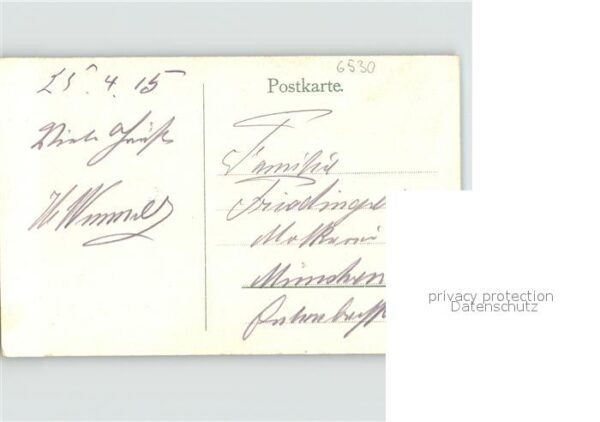 6530
25.4.15
Postkarte.
Viele Grüße
Familie
Friedinge
Molkerei
München
privacy protection
Datenschutz